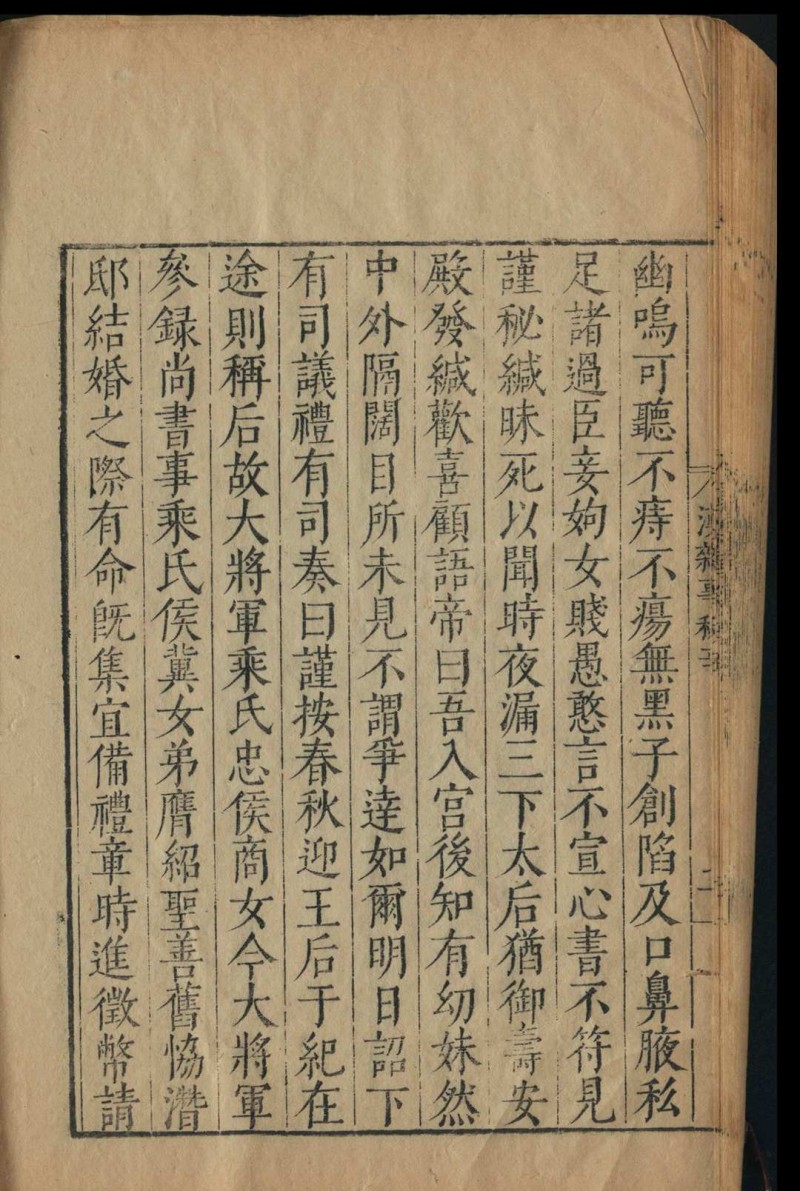 幽鳴可聽不痔不瘍無黑子創陷及口鼻腋私
足諸過臣妾姁女賤愚憨言不宣心書不符見
謹秘緘昧死以聞時夜漏三下太后猶御壽安
殿發緘歡喜顧語帝曰吾入宫後知有幼妹然
中外隔闊目所未見不謂爭逹如爾明日詔下
有司議禮有司奏曰謹按春秋迎王后于紀在
途則稱后故大將軍乘氏忠侯商女今大將軍
參録尚書事乘氏侯冀女弟膺紹聖善舊恊潛
邸結婚之際有命旣集宜備禮章時進徵幣請
漢雜事秘辛
二